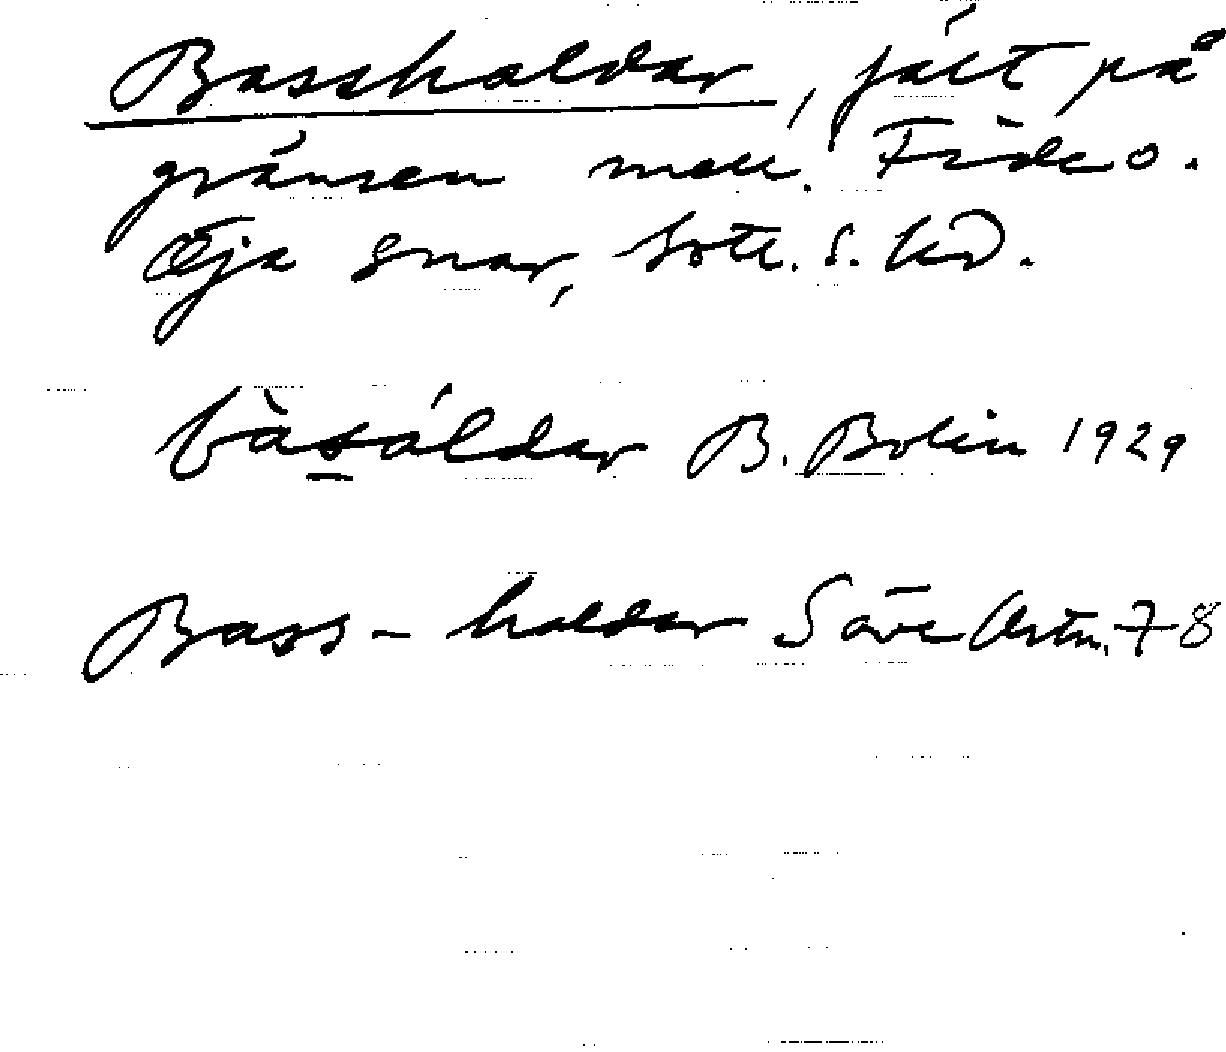 Basshaldar, fält på
gränsen mell. Fide o.
Öja snar, Gotl. S. hd.
bàsáldar B. Bolin 1929
Bass-haldar Säve Ortn. 78